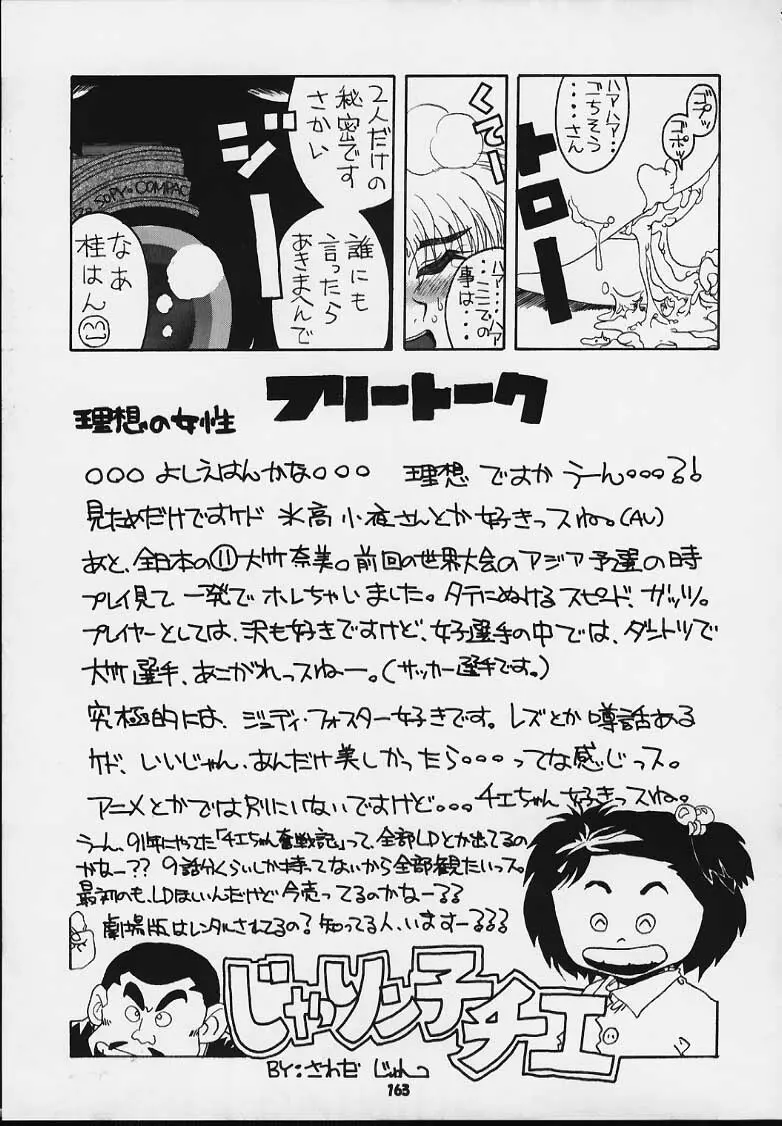 ゴプッ
ゴポッ
ハァハァ…
ごちそう
・・・・さん
トロー
くてー
ハァ…ハァ
・・ここでの
事は・・・・
2人だけの
秘密です
さかい
誰にも
言ったら
あきまへんで
ジー
SOPY・COMPAC
なあ
桂はん
フリートーク
理想の女性
○○○よしえはんかな○○○ 理想ですかうーん。。。る!
見ためだけですケド 氷高小夜さんとか好きっスね。(AV)
あと、全日本の⑪大竹奈美。前回の世界大会のアジア予選の時
プレイ見て一発でホレちゃいました。タテにぬけるスピード、ガッツ。
プレイヤーとしては、沢も好きですけど、女子選手の中では、ダントツで
大竹選手、あこがれっスねー。(サッカー選手です。)
究極的には、ジュディ・フォスター好きです。レズとか噂話ある
ケド、いいじゃん、あんだけ美しかったら。。。ってな感じっス。
アニメとかでは別にいないですけど。。。チエちゃん好きっスね。
うーん、91年にやった「チエちゃん奮戦記」って、全部LDとか出てるの
かなー?? 9話分くらいしか持ってないから全部観たいっス。
最初のも、LDほしいんだけど今売ってるのかなーるる
劇場版はレンタルされてるの?知ってる人、いますーるるる
じゃりン子チエ
BY:さわだ じゅんこ
163